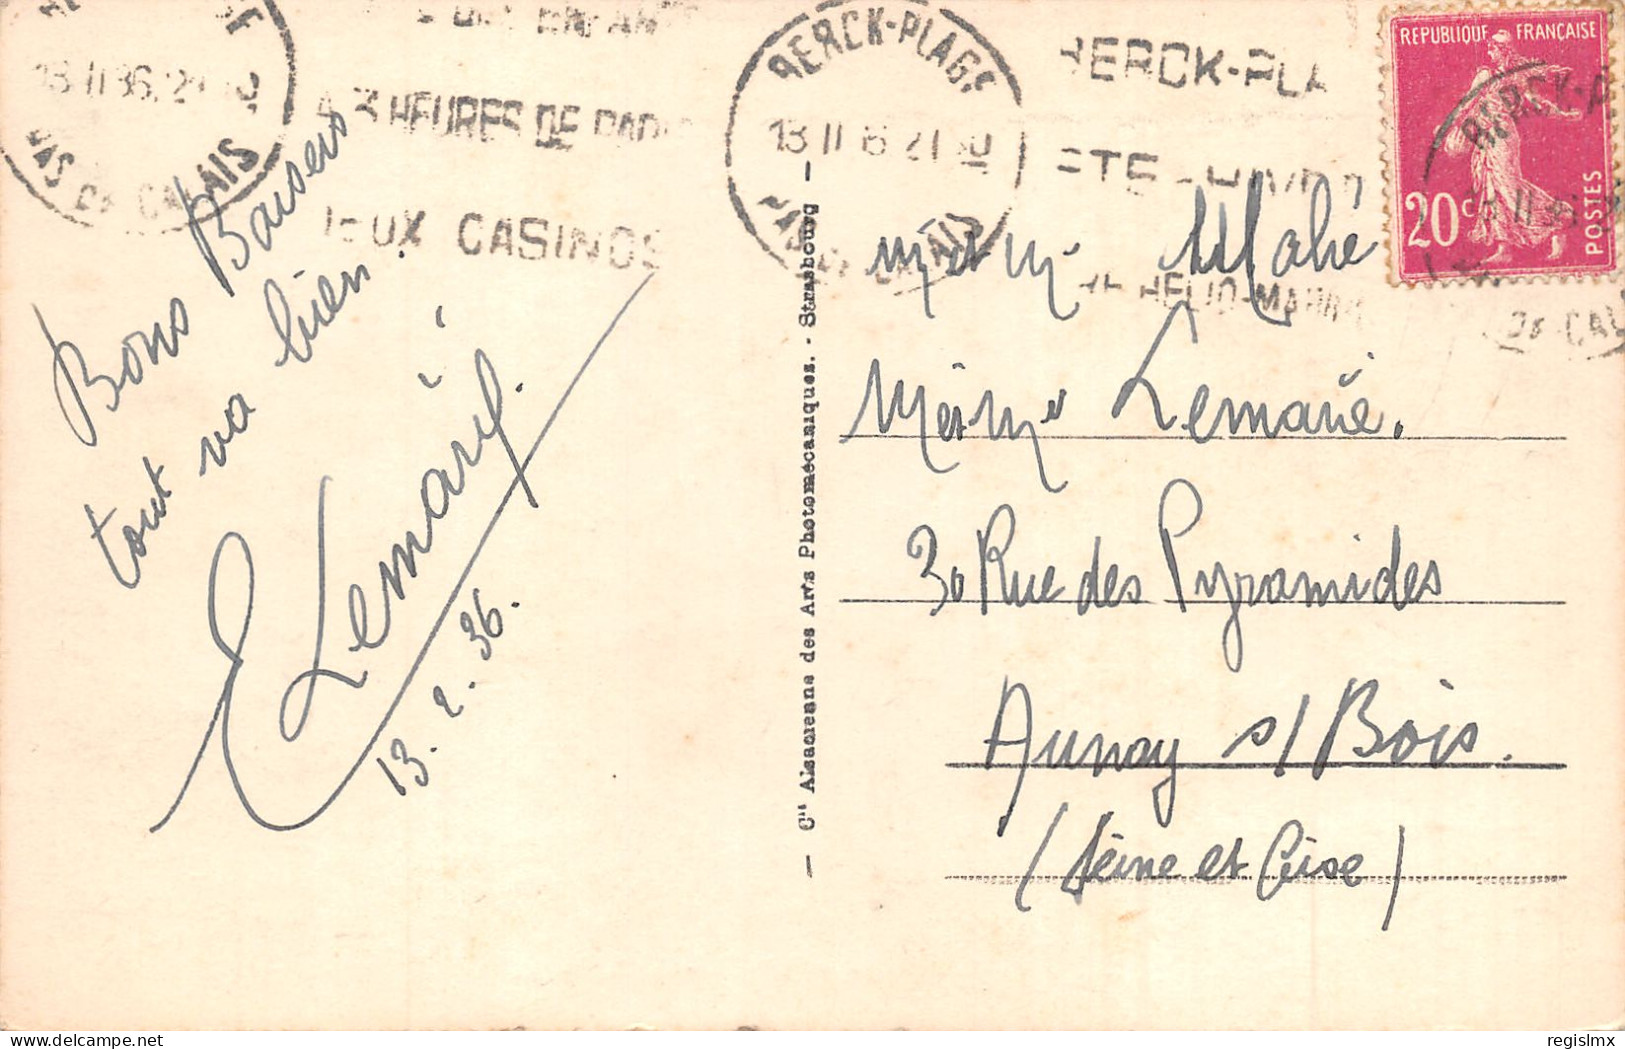 BERCK-PLAGE
13 II 36 21
PAS DE CALAIS
3 HEURES DE PARIS
CASINOS
BERCK-PLAGE
13 II 36 21 30
PAS DE CALAIS
BERCK-PLA
ETE - HIVER
HELIO-MARIN
REPUBLIQUE FRANÇAISE
20 c
POSTES
BERCK-P
DE CAL
Bons Baisers
tout va bien.
Lemarié
13-2-36.
— Cie Alsacienne des Arts Photomécaniques. - Strasbourg —
M. et Me Mahé
M. et Me Lemarié.
30 Rue des Pyramides
Aunay s/ Bois.
(Seine et Oise)
regislmx